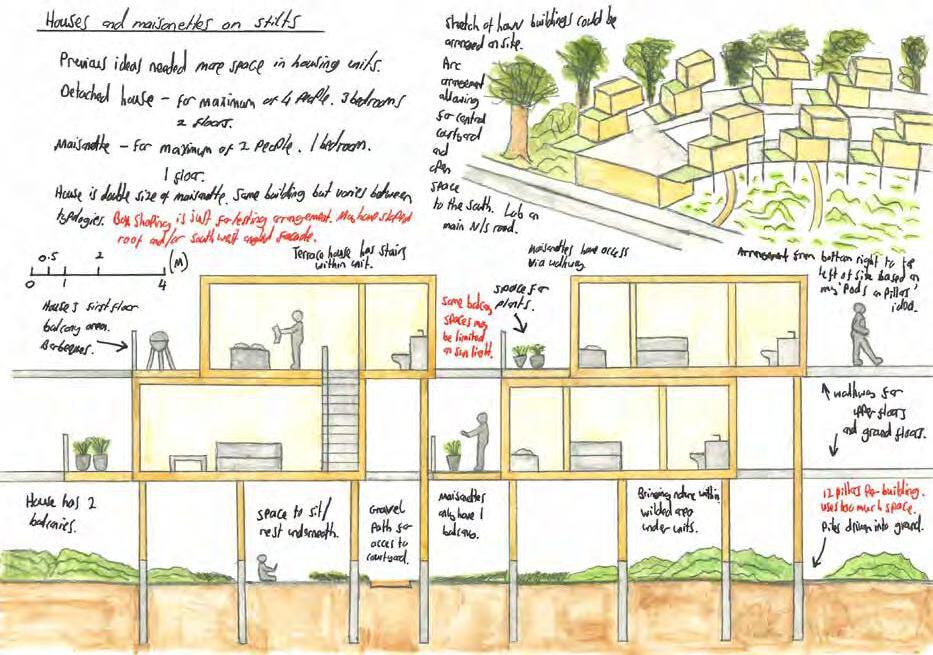 Houses and maisonettes on stilts
Previous ideas needed more space in housing units.
Detached house - for maximum of 4 people. 3 bedrooms
2 floors.
Maisonette - for maximum of 2 people. 1 bedroom.
1 floor.
House is double size of maisonette. Same building but varies between
typologies. Box shaping is just for testing arrangement. May have sloped
roof and/or south west angled facade.
Sketch of how buildings could be
arranged on site.
Arc
arrangement
allowing
for central
courtyard
and
open
space
to the south. Lab on
main N/S road.
0.5 2 (M)
0 1 4
Terrace house has stairs
within unit.
Maisonettes have access
via walkway.
Arrangement from bottom right to top
left of site based on
my 'Pods on Pillars'
idea.
House's first floor
balcony area.
Barbeques.
Some balcony
spaces may
be limited
on sun light.
space for
plants.
walkway for
upper floors
and ground floors.
House has 2
balconies.
space to sit/
rest underneath.
Gravel
Path for
access to
courtyard.
Maisonettes
only have 1
balcony.
Bringing nature within
wilded area
under units.
12 pillars per building.
uses too much space.
Piles driven into ground.